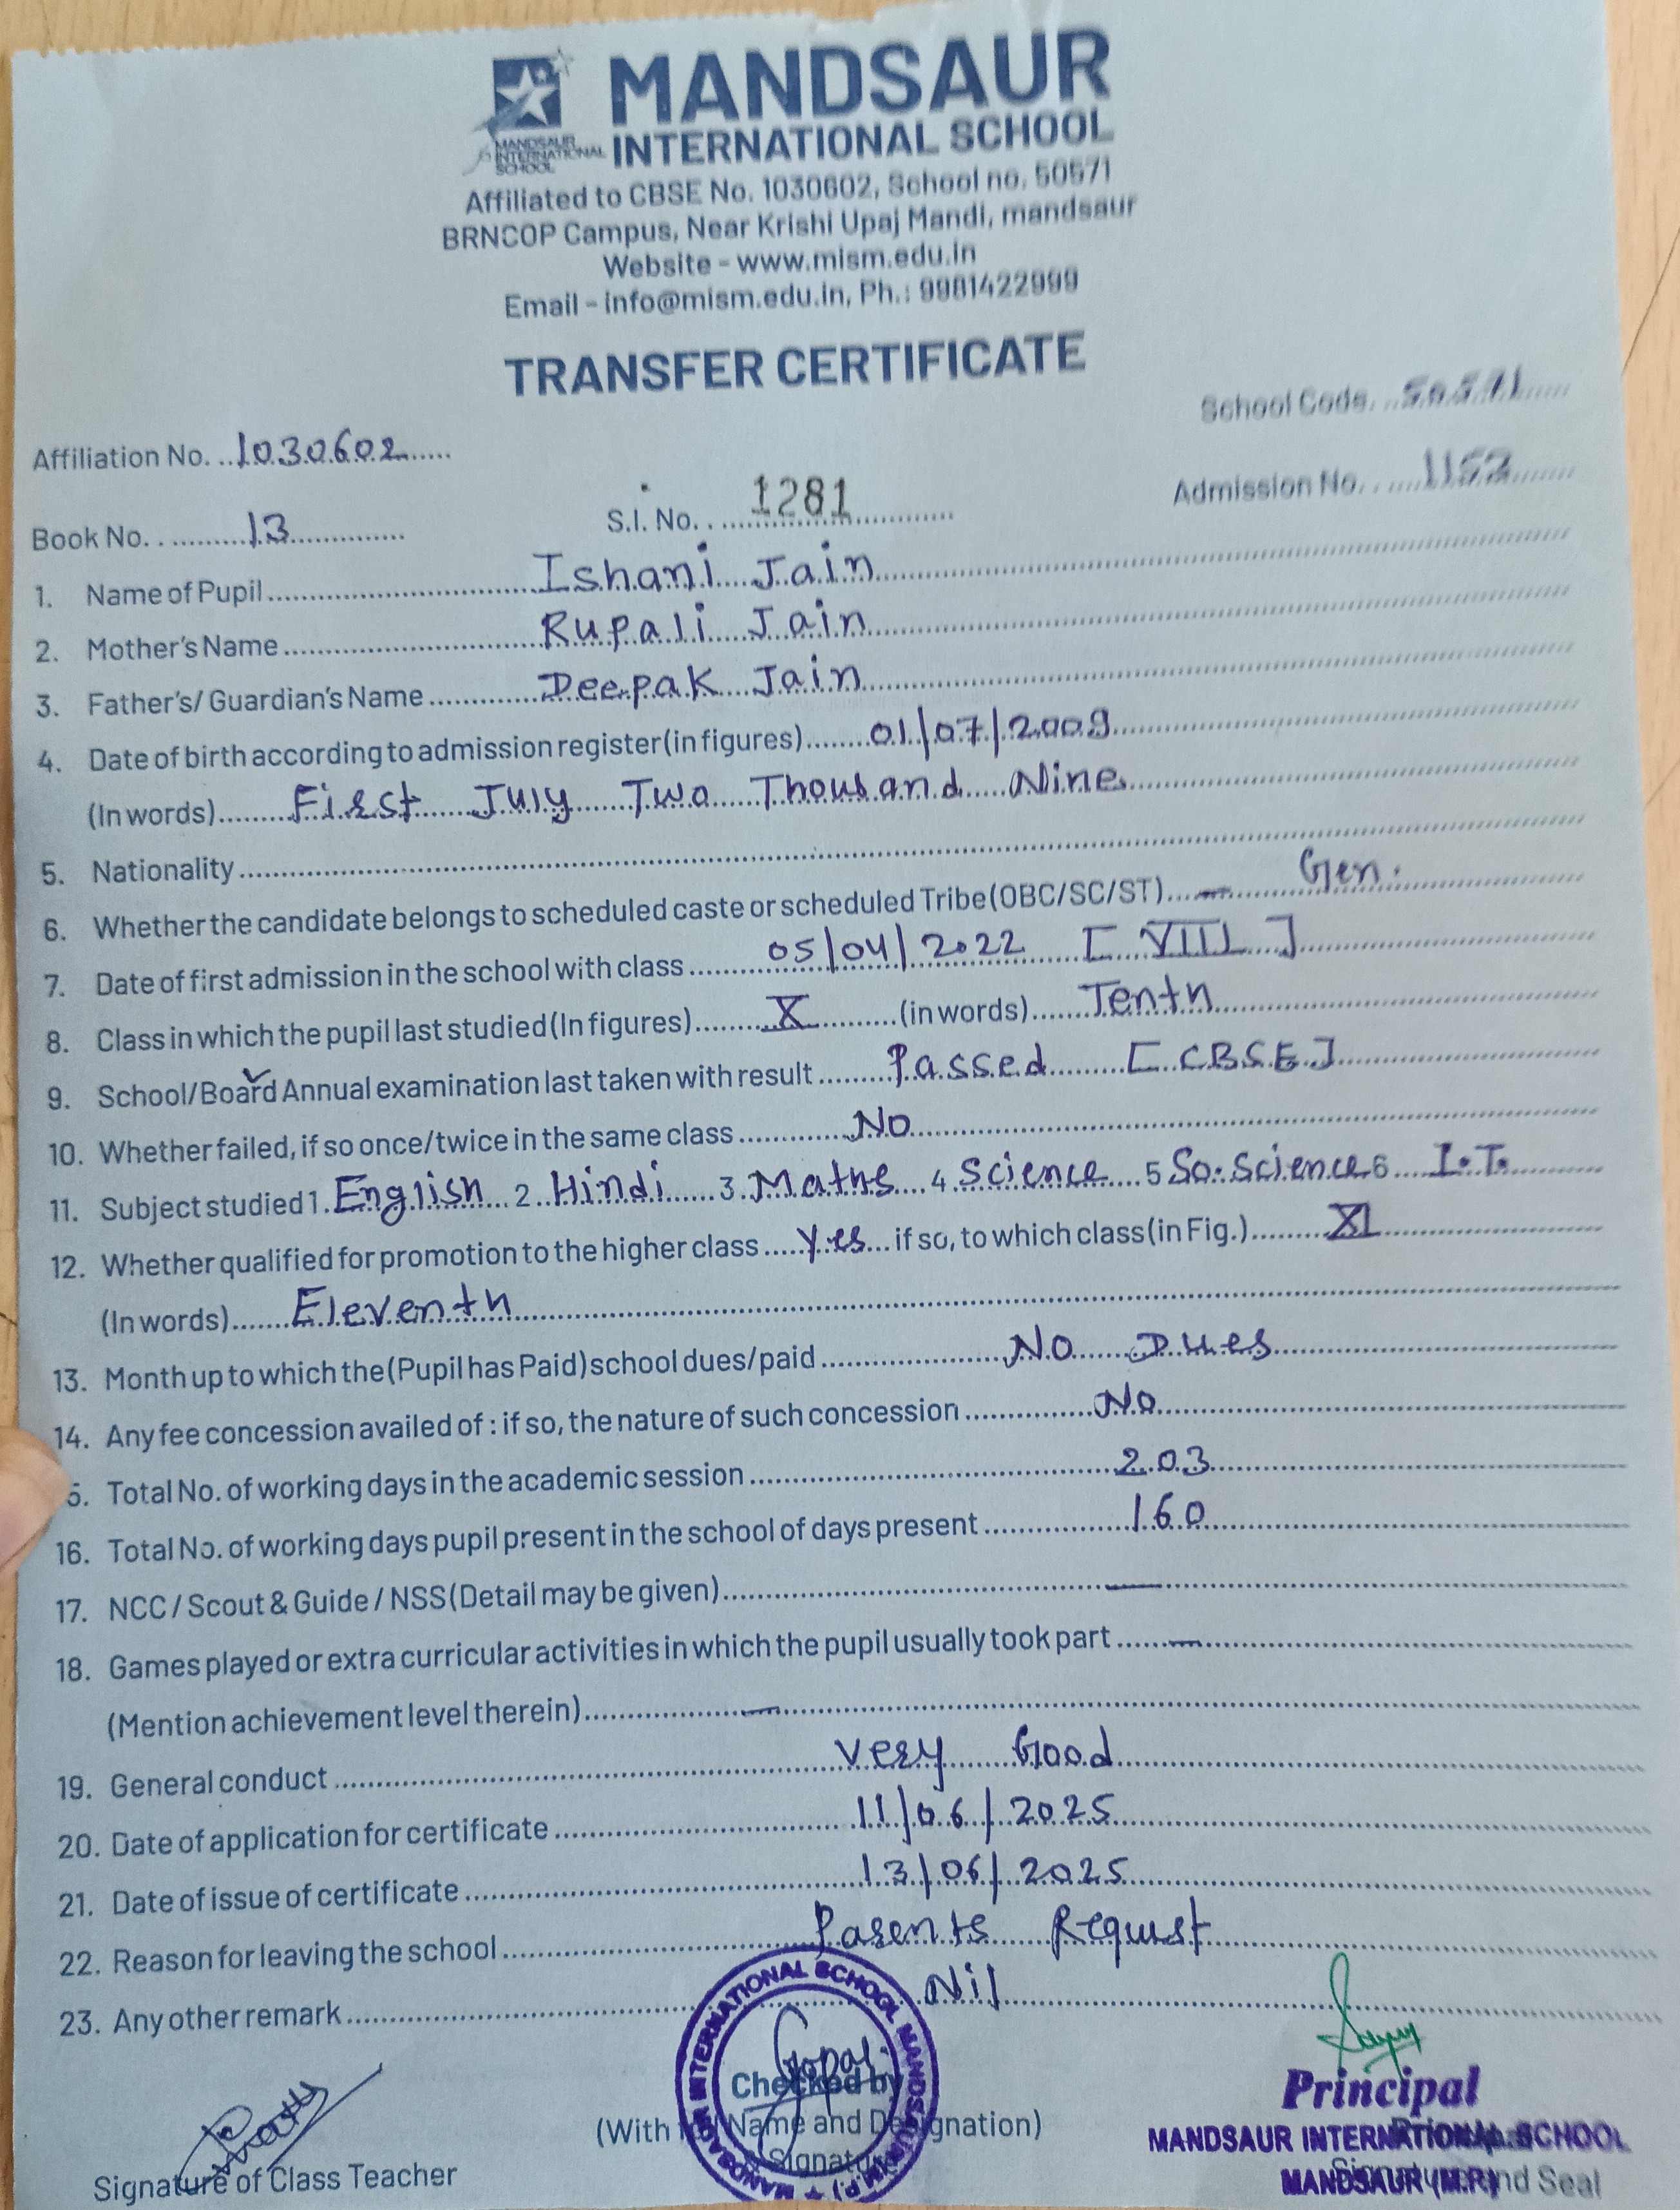 MANDSAUR
INTERNATIONAL SCHOOL
MANDSAUR
INTERNATIONAL
SCHOOL
Affiliated to CBSE No. 1030602, School no. 50571
BRNCOP Campus, Near Krishi Upaj Mandi, mandsaur
Website - www.mism.edu.in
Email - info@mism.edu.in, Ph.: 9981422999
TRANSFER CERTIFICATE
School Code. 50571
Affiliation No. 1030602
Admission No. 1152
Book No. 13 S.I. No. 1281
1. Name of Pupil Ishani Jain
2. Mother's Name Rupali Jain
3. Father's/ Guardian's Name Deepak Jain
4. Date of birth according to admission register(in figures) 01/07/2009
(In words) First July Two Thousand Nine
5. Nationality
6. Whether the candidate belongs to scheduled caste or scheduled Tribe(OBC/SC/ST) — Gen.
7. Date of first admission in the school with class 05/04/2022 [ VIII ]
8. Class in which the pupil last studied(In figures) X (in words) Tenth
9. School/Board Annual examination last taken with result Passed [ CBSE ]
10. Whether failed, if so once/twice in the same class No
11. Subject studied 1. English 2 Hindi 3. Maths 4 Science 5 So. Science 6 I.T.
12. Whether qualified for promotion to the higher class yes if so, to which class(in Fig.) XI
(In words) Eleventh
13. Month up to which the (Pupil has Paid) school dues/paid No Dues
14. Any fee concession availed of : if so, the nature of such concession No
5. Total No. of working days in the academic session 203
16. Total No. of working days pupil present in the school of days present 160
17. NCC / Scout & Guide / NSS(Detail may be given) —
18. Games played or extra curricular activities in which the pupil usually took part —
(Mention achievement level therein) —
19. General conduct Very Good
20. Date of application for certificate 11/06/2025
21. Date of issue of certificate 13/06/2025
22. Reason for leaving the school Parents Request
23. Any other remark Nil
INTERNATIONAL SCHOOL MANDSAUR (M.P.)
Checked by
(With Name and Designation)
Signature
Signature of Class Teacher
Principal
MANDSAUR INTERNATIONAL SCHOOL
MANDSAUR (M.P.)
Signature and Seal